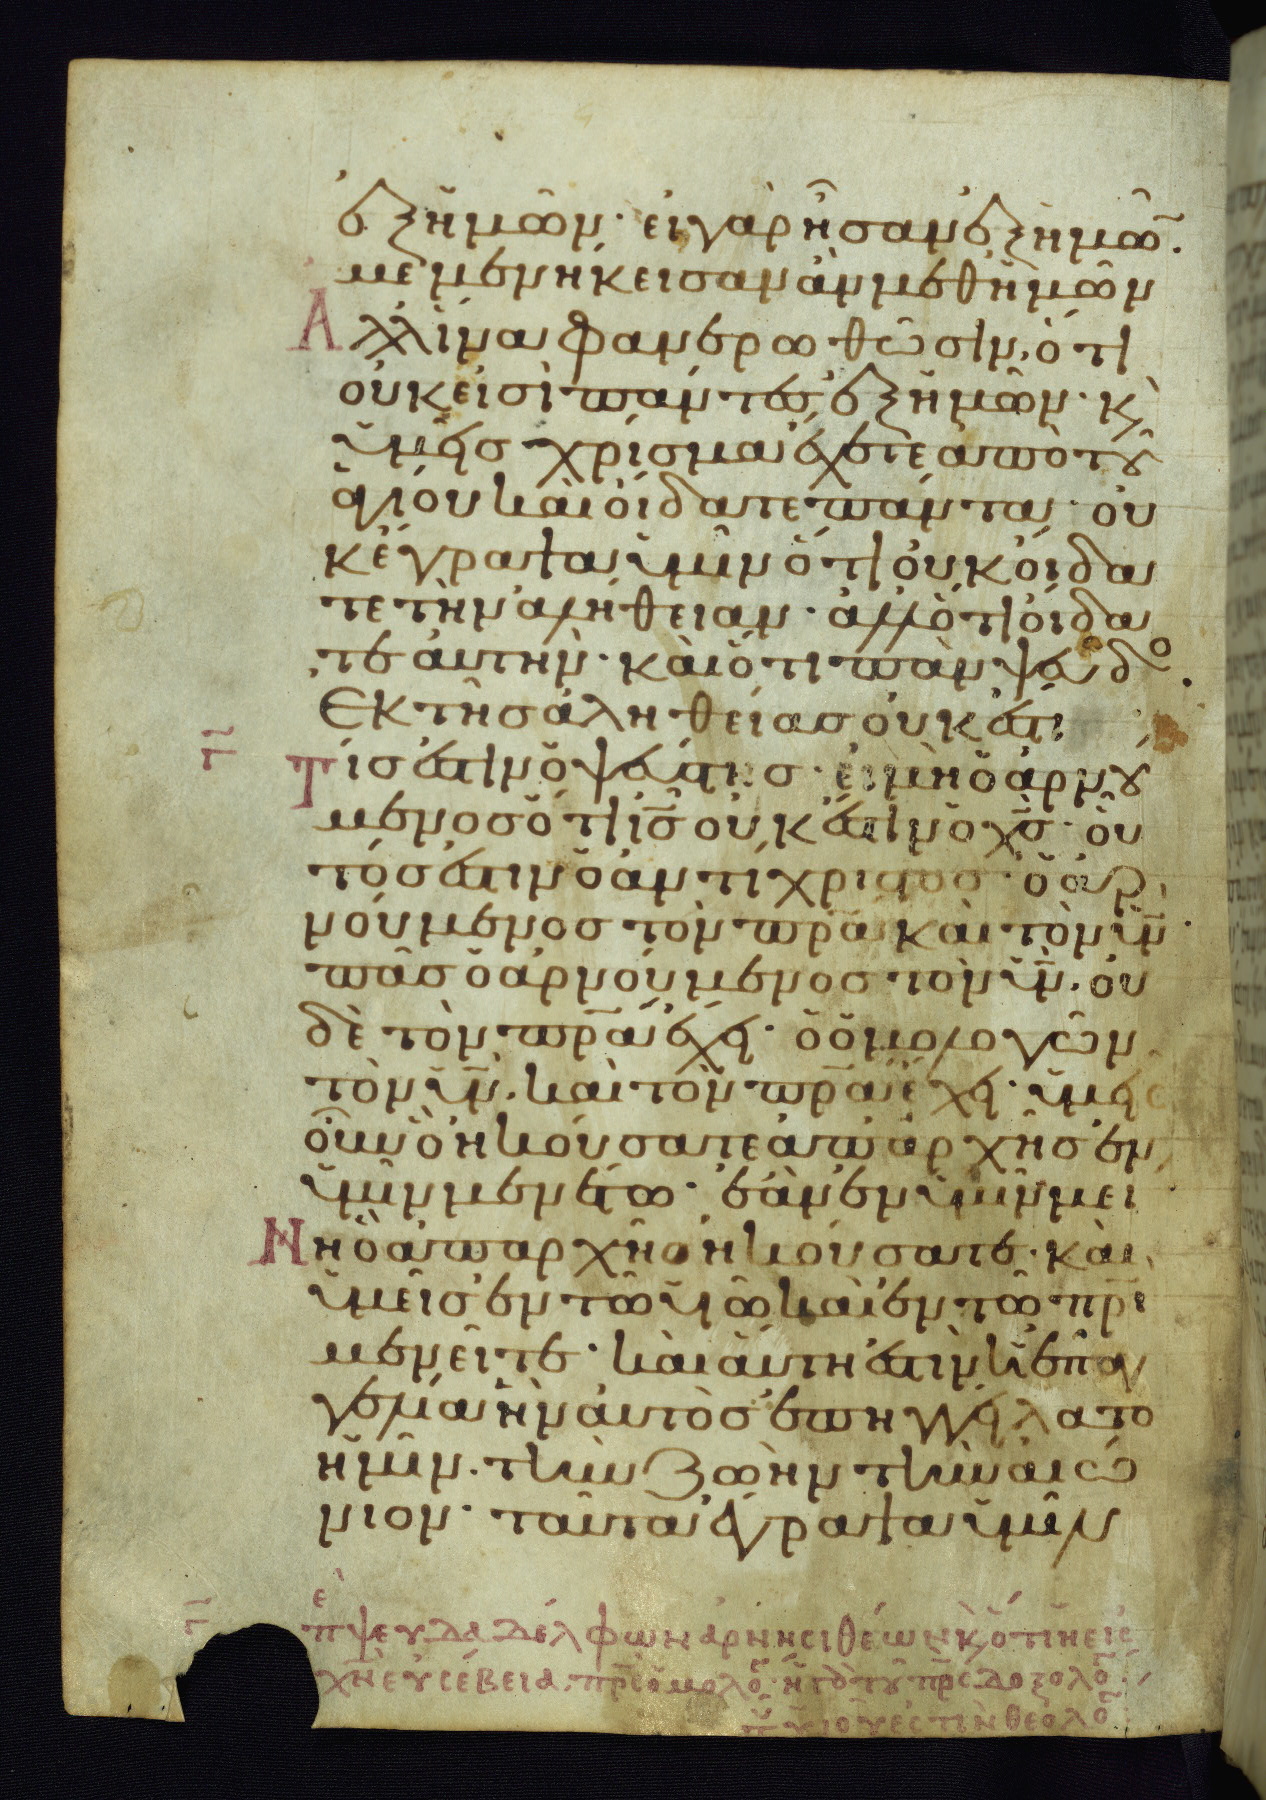 ἐξ ἡμῶν· εἰ γὰρ ἦσαν ἐξ ἡμῶ̅.
μεμενήκεισαν ἂν μεθ ἡμῶν
Ἀλλ ἵνα φανερωθῶσιν, ὅτι
οὐκ εἰσὶ πάντες ἐξ ἡμῶν· κ̀
ὑμεῖς χρίσμα ἔχετε ἀπὸ τοῦ
ἁγίου καὶ οἴδατε πάντα· οὐ
κ ἔγραψα ὑμῖν ὅτι οὐκ οἴδα
τε τὴν ἀλήθειαν· ἀλλ ὅτι οἴδα
τε αὐτήν· καὶ ὅτι πᾶν ψεῦδο.
Ἐκ τῆς ἀληθείας οὐκ ἔστι
γ̅ Τίς ἐστιν ὁ ψεύστης· εἰ μὴ ὁ ἀρνού
μενος ὅτι ι̅ς̅ οὐκ ἔστιν ὁ χ̅ς̅· οὗ
τός ἐστιν ὁ ἀντίχριστος· ὁ ἀρ
νούμενος τὸν π̅ρ̅α̅ καὶ τὸν υ̅ν̅·
πᾶς ὁ ἀρνούμενος τὸν υ̅ν̅. οὐ
δὲ τὸν π̅ρ̅α̅ ἔχει· ὁ ὁμολογῶν
τὸν υ̅ν̅. καὶ τὸν π̅ρ̅α̅ ἔχει· ὑμεῖς
οὖν ὃ ἠκούσατε ἀπ ἀρχῆς ἐν
ὑμῖν μενέτω· ἐὰν ἐν ὑμῖν μεί
Νῃ ὃ ἀπ ἀρχῆς ἠκούσατε· καὶ
ὑμεῖς ἐν τῶ υἱῶ καὶ ἐν τῶ π̅ρ̅ι̅
μενεῖτε· καὶ αὕτη ἐστὶν ἡ ἐπα
γγελία ἣν αὐτὸς ἐπηγγείλατο
ἡμῖν. τὴν ζωὴν τὴν αἰώ
νιον· ταῦτα ἔγραψα ὑμῖν
γ̅ π ψευδαδέλφων ἀρνησιθέων κ̀ ὅτι ἡ εἰς
χ̅ν̅ εὐσέβεια. π̅ρ̅ς̅ ὁμολο ἡ τοῦ π̅ρ̅ς̅ δοξολο
υἱοῦ ἐστὶν θεολο